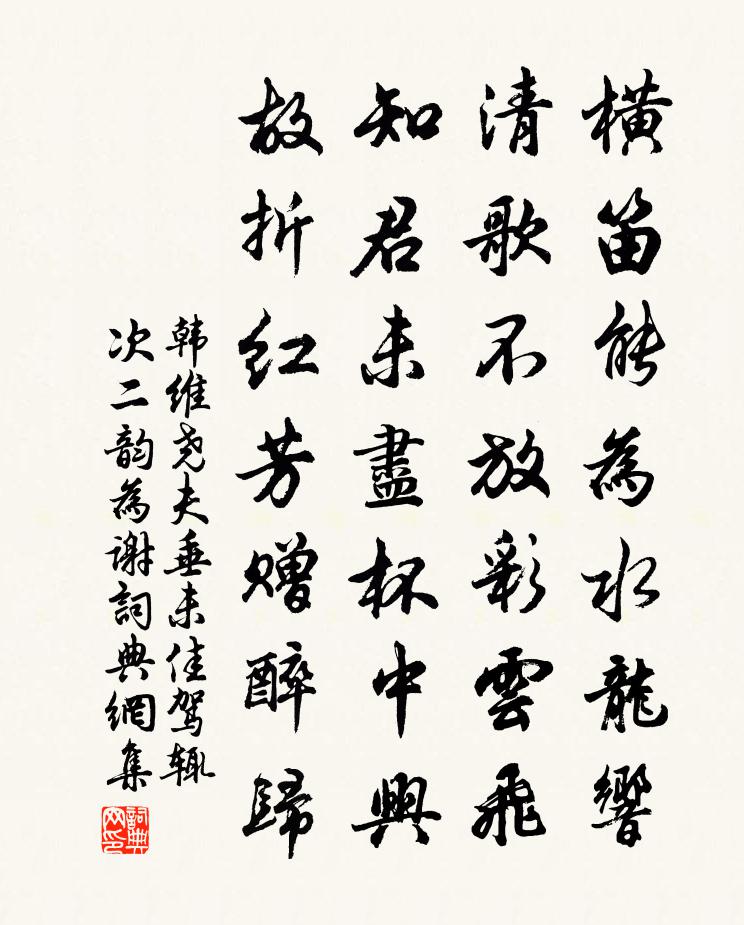 橫笛能為水龍響
清歌不放彩雲飛
知君未盡杯中興
故折紅芳贈醉歸
韩維尧夫垂未佳驾輒
次二韵為謝詞典網集
詞典網印